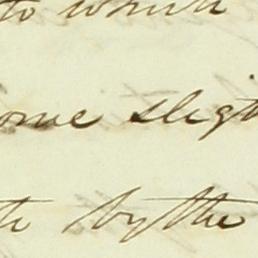 to which
some slight
by the